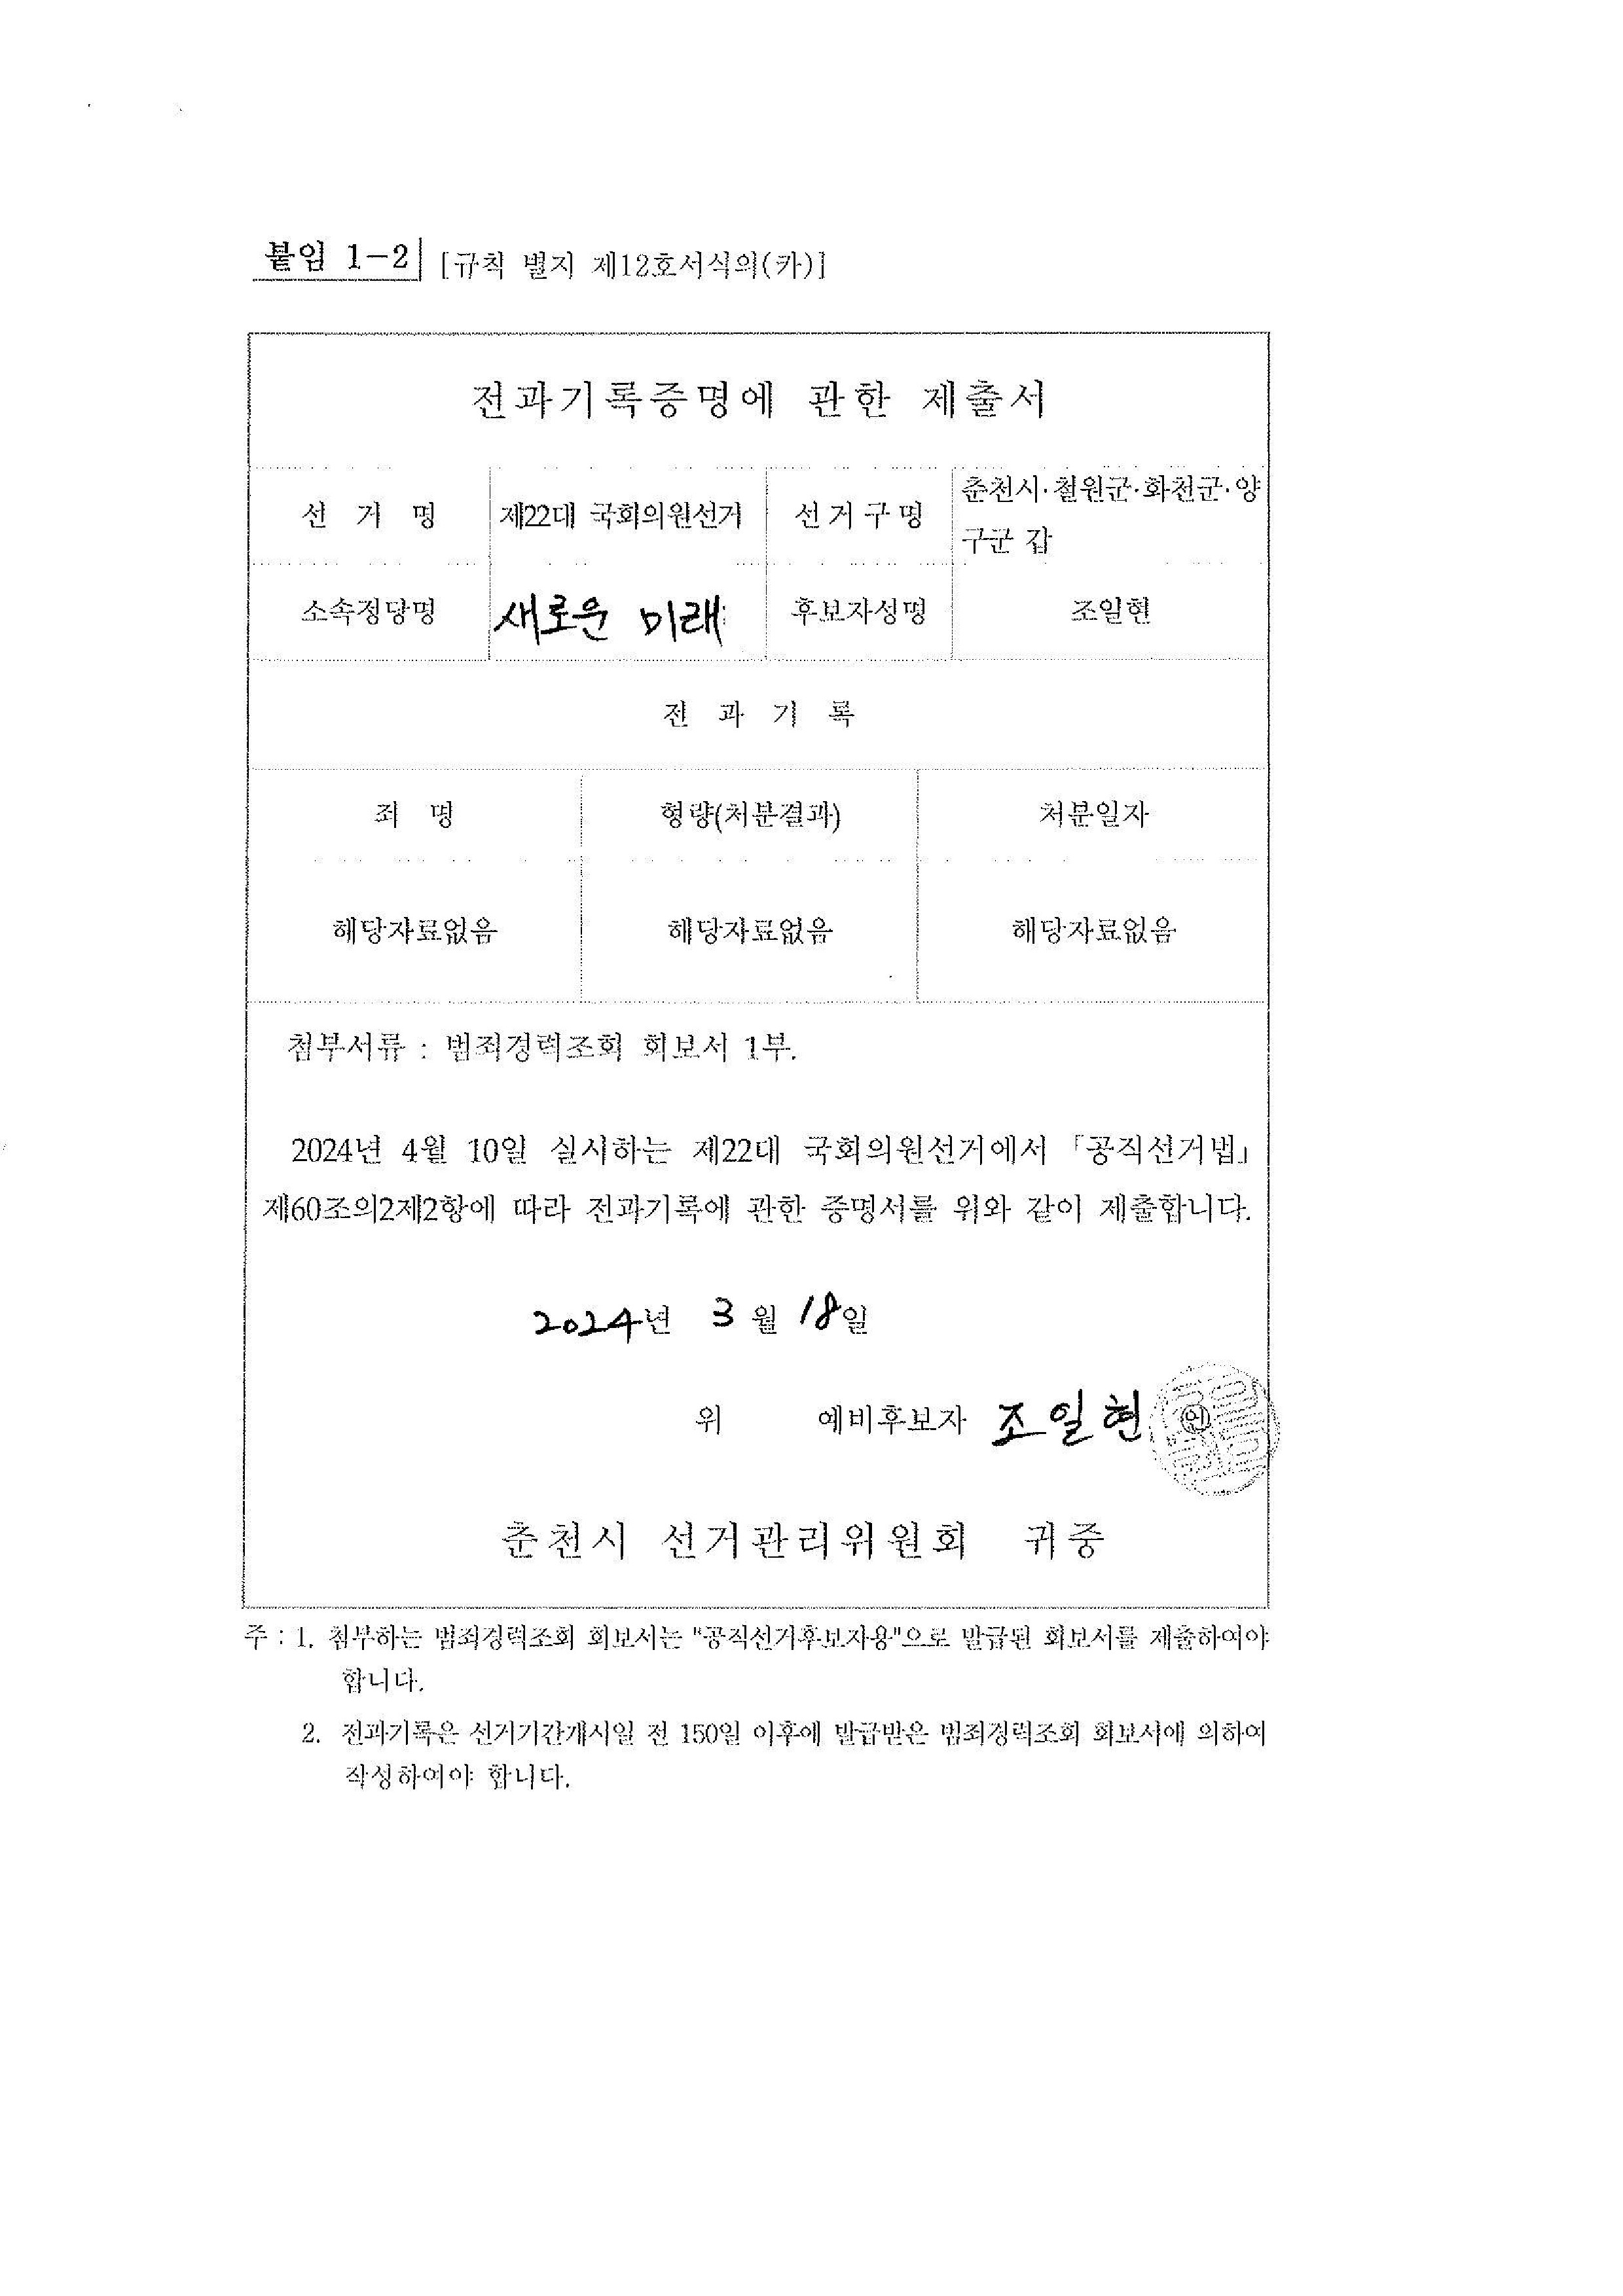 붙임 1-2 [규칙 별지 제12호서식의(카)]
전과기록증명에 관한 제출서
선 거 명 제22대 국회의원선거 선거구명 춘천시·철원군·화천군·양
구군 갑
소속정당명 새로운 미래 후보자성명 조일현
전 과 기 록
죄 명 형량(처분결과) 처분일자
해당자료없음 해당자료없음 해당자료없음
첨부서류 : 범죄경력조회 회보서 1부.
2024년 4월 10일 실시하는 제22대 국회의원선거에서 「공직선거법」
제60조의2제2항에 따라 전과기록에 관한 증명서를 위와 같이 제출합니다.
2024년 3월 18일
위 예비후보자 조일현 ㊞
춘천시 선거관리위원회 귀중
주 : 1. 첨부하는 범죄경력조회 회보서는 "공직선거후보자용"으로 발급된 회보서를 제출하여야
합니다.
2. 전과기록은 선거기간개시일 전 150일 이후에 발급받은 범죄경력조회 회보서에 의하여
작성하여야 합니다.